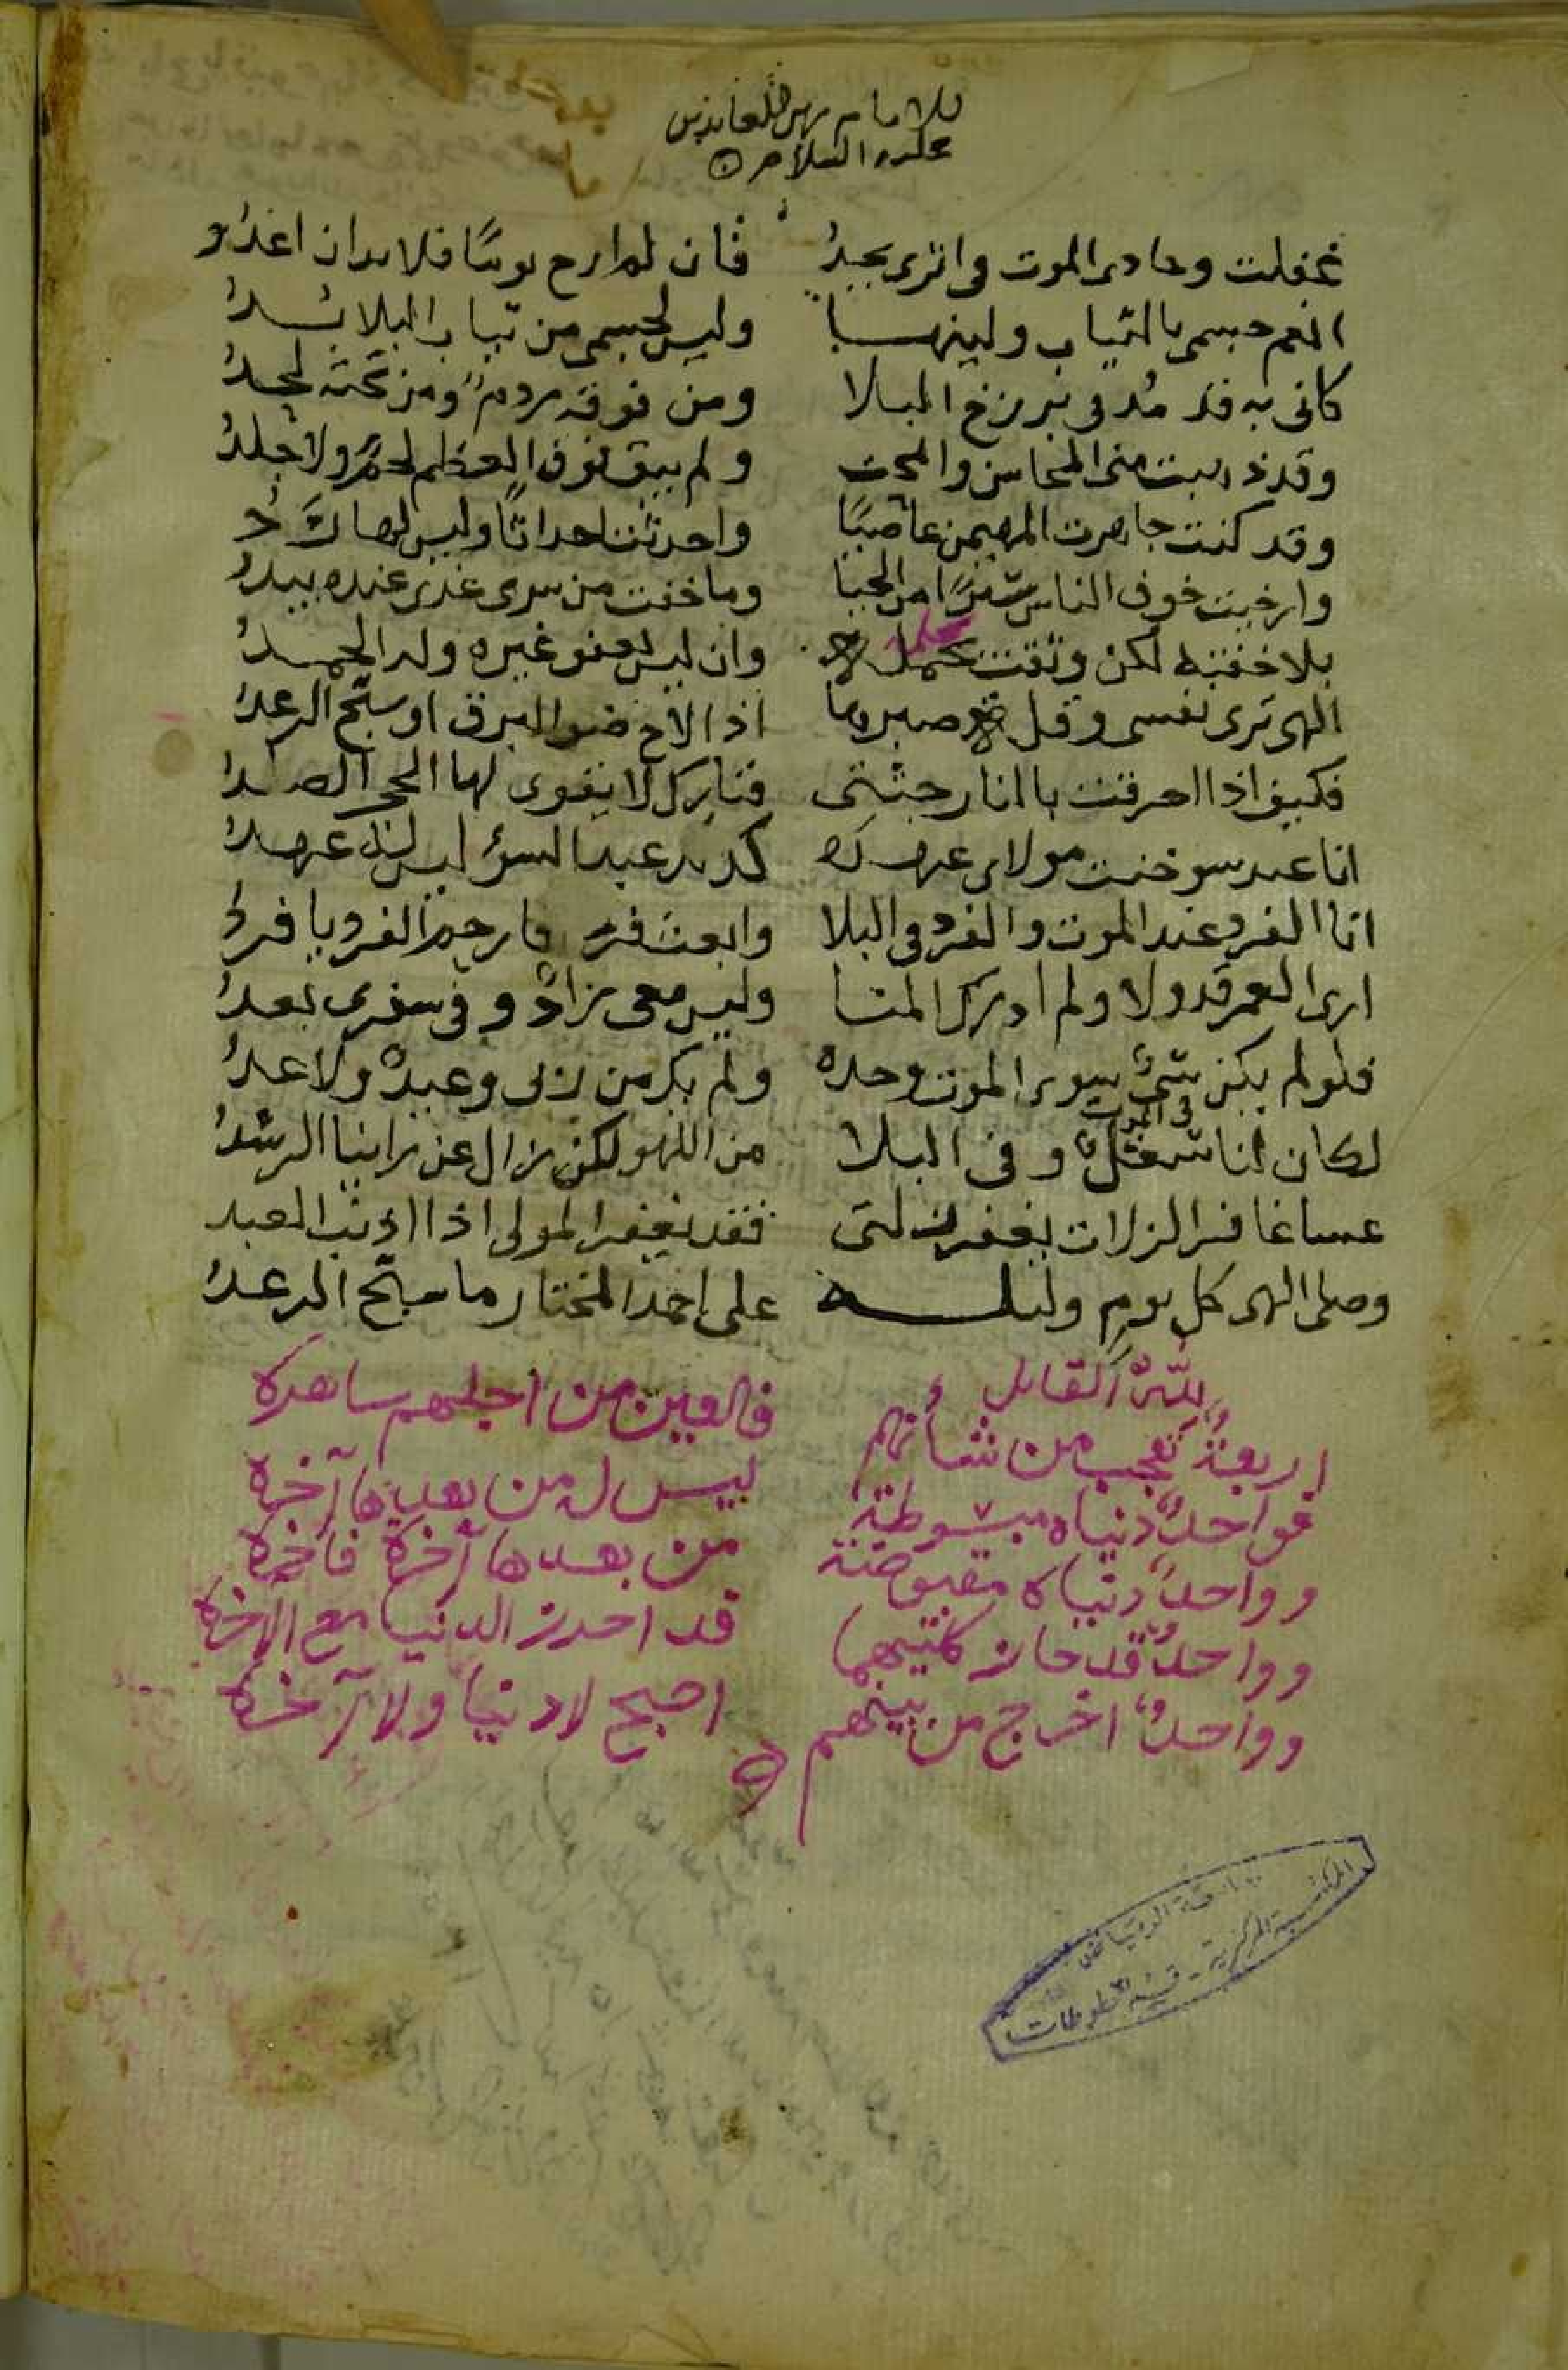 للامام زين العابدين
عليه السلام
غفلت وحادي الموت في اثري يجدُ فان لم ارح يومًا فلا بد ان اغدُو
انعم جسمي بالثياب ولينها وليس لجسمي من ثياب البلا بُدُ
كاني به قد مُد في برزخ البلا ومن فوقه ردمٌ ومن تحته لحدُ
وقد ذهبت مني المحاسن وانمحت ولم يبق فوق العظم لحمٌ ولا جلدُ
وقد كنت جاهرت المهيمن عاصيًا واحدثت احداثًا وليس لها رَدُ
وارخيت خوف الناس سترًا من الحيا وما خفت من سري غدي عنده يبدُ
بلا خفته لكن وثقت بحلمه وان ليس يعفو غيره وله الحمدُ
الهي ترى نفسي وقل صبرها اذا لاح ضوا البرق او سبّح الرعدُ
فكيف اذا احرقت بالنار جثتي فنارك لا يقوى لها الحجر الصلدا
انا عبد سو خنت مولاي عهده كذلك عبد السؤ ليس له عهدُ
انا الفرد عند الموت والفرد في البلا وابعث فرد فارحم الفرد يا فردُ
ارى العمر قد ولا ولم ادرك المنا وليس معي زادٌ وفي سفري بعدُ
فلو لم يكن شئٌ سوى الموت وحده ولم يكن من ربي وعيدٌ ولا وعدُ
لكان لنا شغلٌ في الموت وفي البلا من اللهو لكن زال عن راينا الرشدُ
عسا غافر الزلات يغفر زلتي فقد يغفر المولى اذا اذنب العبد
وصلى الهي كل يومٍ وليلــــة على احمد المختار ما سبّح الرعدُ
للّهِ القايل
اربعةٌ تُعجب من شأنهم فالعين من اجلهم ساهره
فواحدٌ دنياه مبسوطة ليس له من بعدها آخره
وواحدٌ دنياه مقبوضة من بعدها آخرة فاخره
وواحدٌ قد حاز كلتيهما قد احرز الدنيا مع الآخره
وواحدٌ اخرج من بينهم اصبح لا دنيا ولا آخره
جامعة الرياض
المكتبة المركزية - قسم المخطوطات